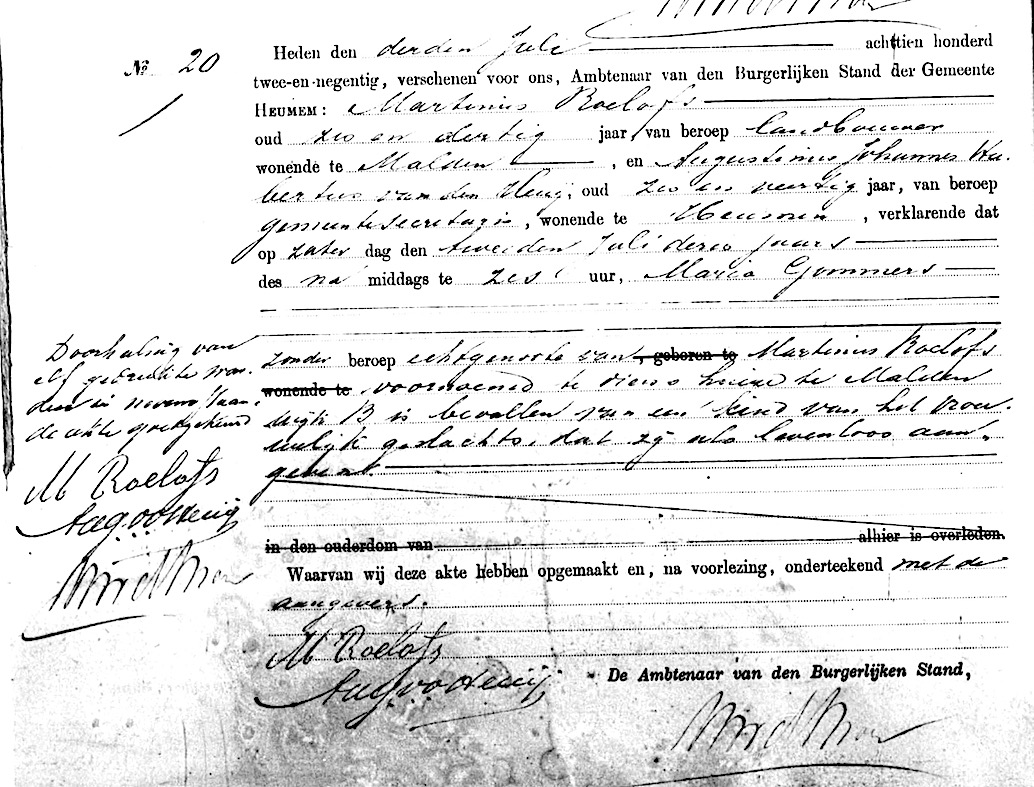 № 20
Heden den derden Juli achttien honderd
twee-en-negentig, verschenen voor ons, Ambtenaar van den Burgerlijken Stand der Gemeente
HEUMEM: Martinus Roelofs
oud zes en dertig jaar, van beroep landbouwer
wonende te Malden, en Augustinus Johannes Hu-
bertus van den Heuij, oud zes en veertig jaar, van beroep
gemeentesecretaris, wonende te Heumen, verklarende dat
op zater dag den tweeden Juli dezer jaars
des na middags te zes uur, Maria Gommers
zonder beroep echtgenoote van, geboren te Martinus Roelofs
wonende te voornoemd te diens huize te Malden
wijk B is bevallen van een kind van het vrou-
welijk geslacht, dat zij als levenloos aan-
geven
in den ouderdom van alhier is overleden.
Waarvan wij deze akte hebben opgemaakt en, na voorlezing, onderteekend met de
aangevers.
M Roelofs
De Ambtenaar van den Burgerlijken Stand,
Doorhaling van
elf gedrukte woor-
den in nevenstaan-
de akte goedgekeurd
M Roelofs